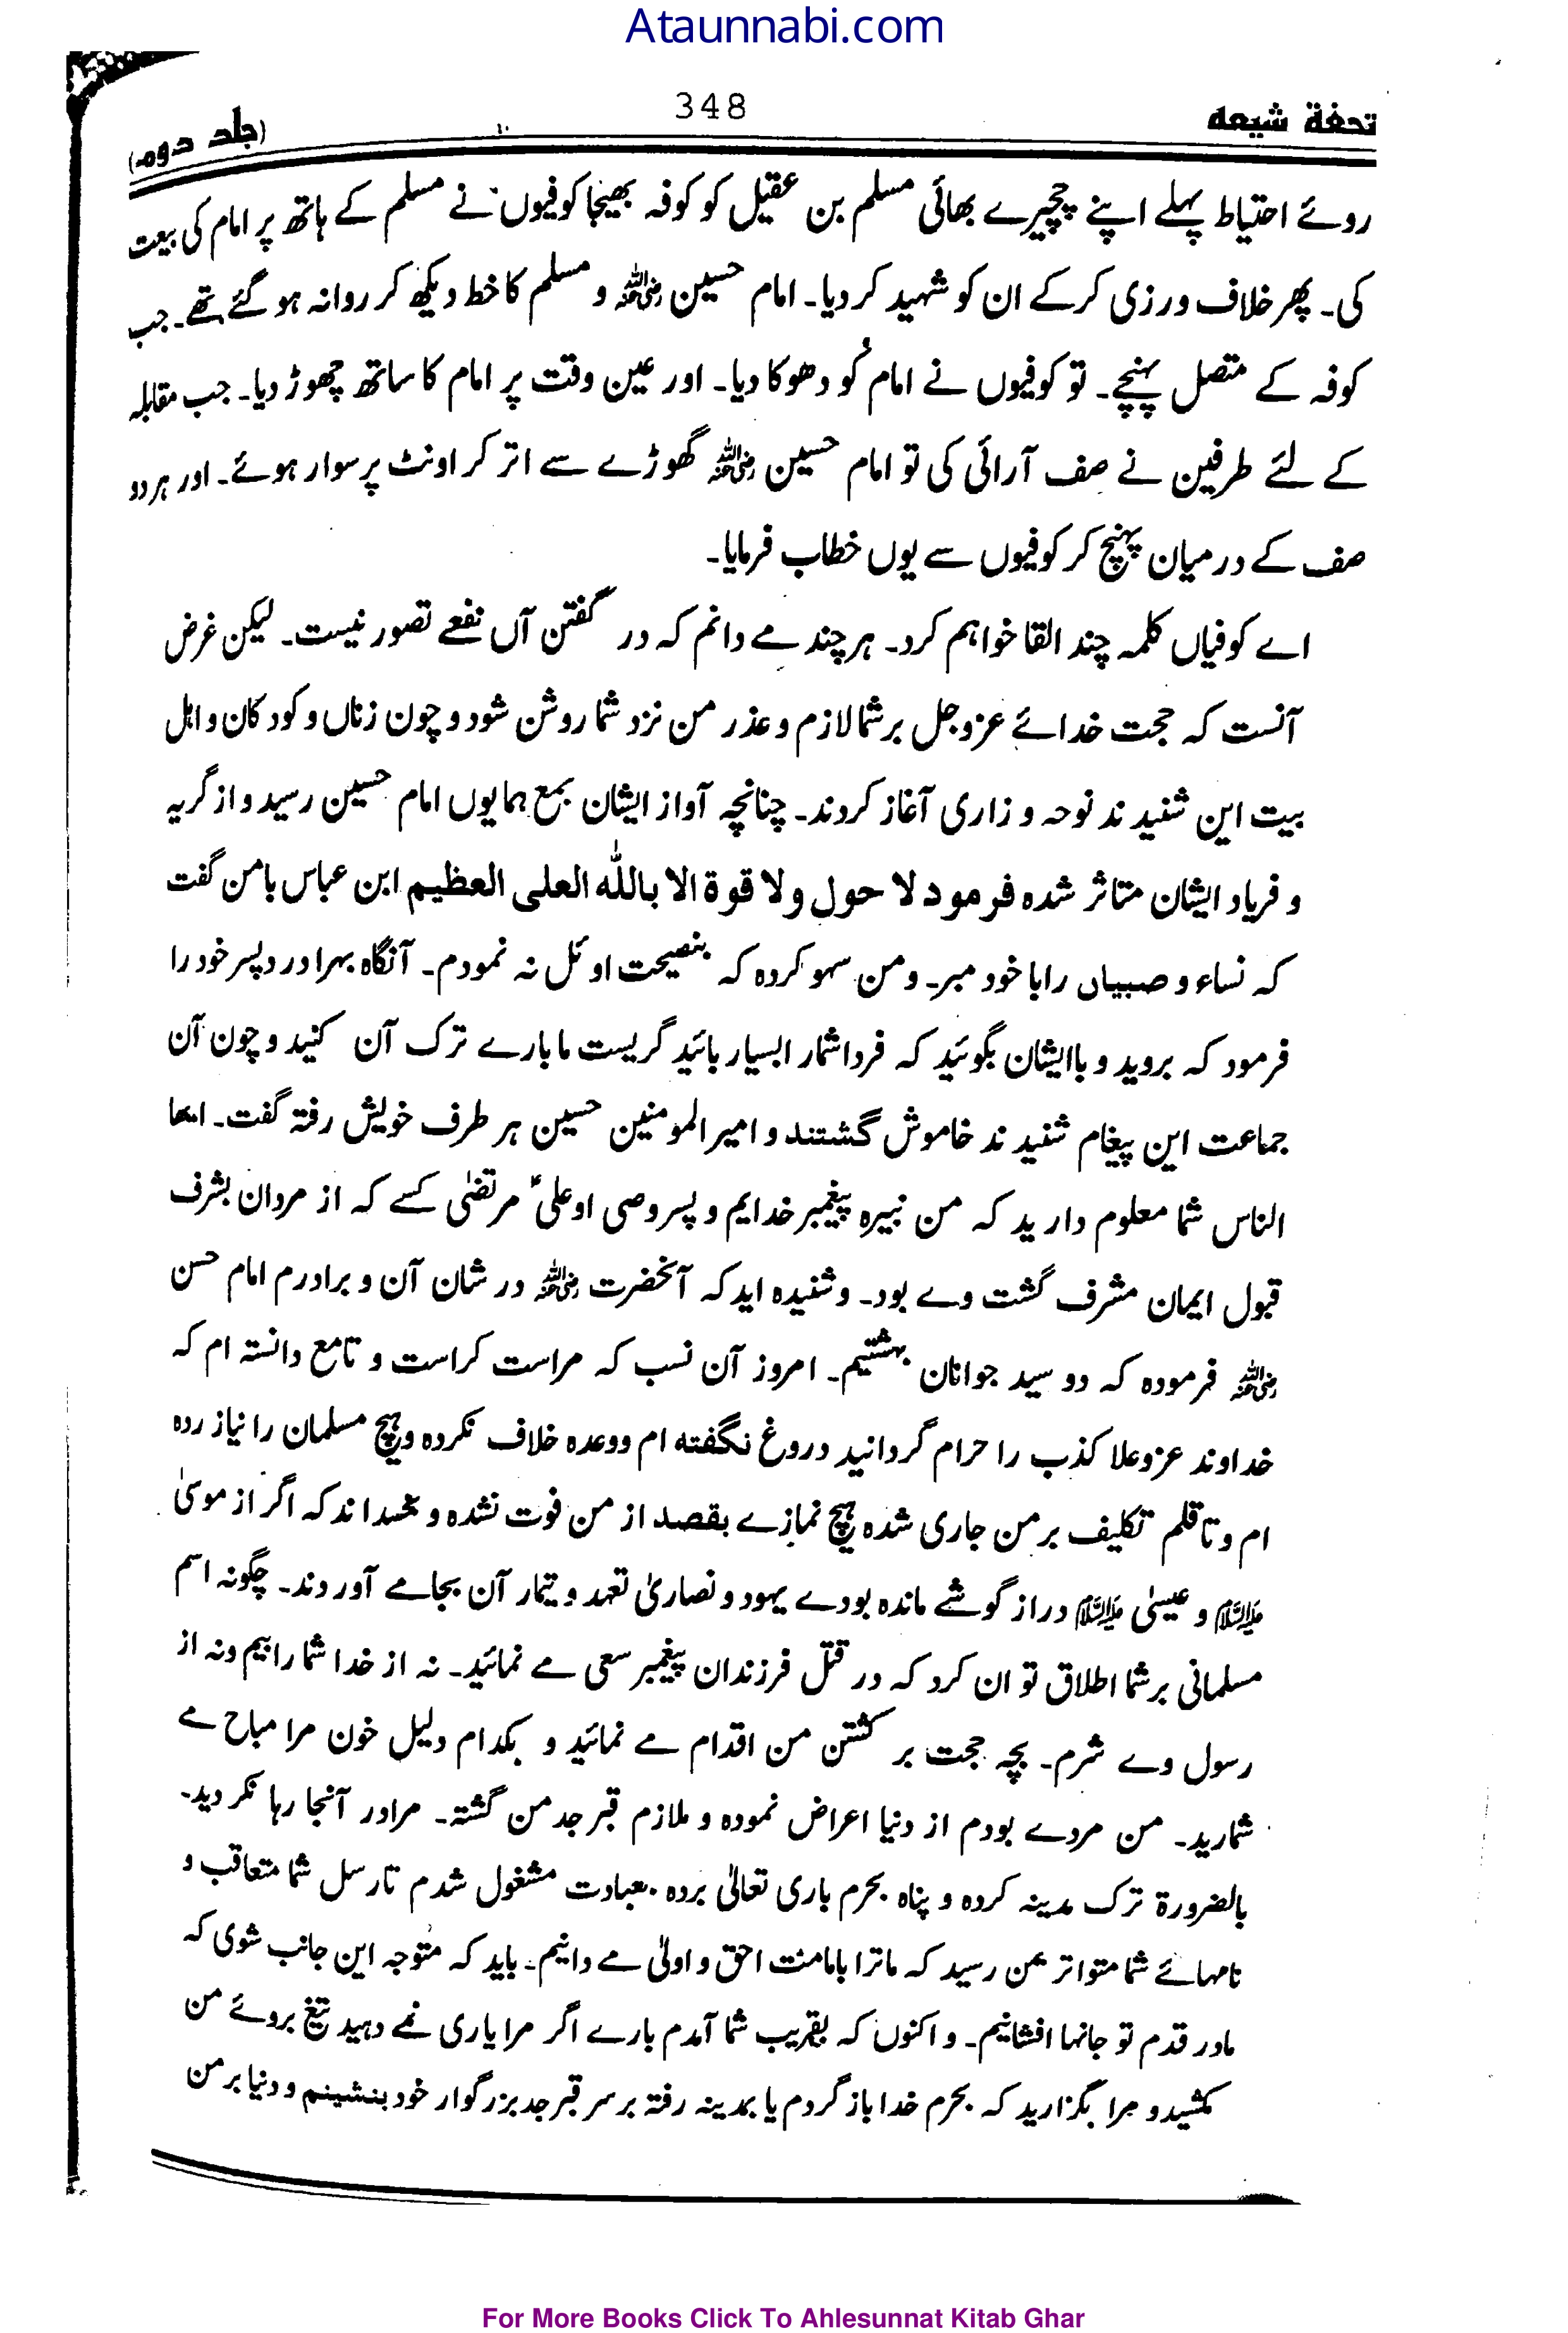 Ataunnabi.com
تحفة شیعه 348 (جلد دوم)
روئے احتیاط پہلے اپنے چچیرے بھائی مسلم بن عقیل کو کوفہ بھیجا کوفیوں نے مسلم کے ہاتھ پر امام کی بیعت
کی۔ پھر خلاف ورزی کرکے ان کو شہید کر دیا۔ امام حسین رضی اللہ عنہ و مسلم کا خط دیکھ کر روانہ ہو گئے تھے۔ جب
کوفہ کے متصل پہنچے۔ تو کوفیوں نے امام کو دھوکا دیا۔ اور عین وقت پر امام کا ساتھ چھوڑ دیا۔ جب مقابلہ
کے لئے طرفین نے صف آرائی کی تو امام حسین رضی اللہ عنہ گھوڑے سے اتر کر اونٹ پر سوار ہوئے۔ اور ہر دو
صف کے درمیان پہنچ کر کوفیوں سے یوں خطاب فرمایا۔
اے کوفیاں کلمہ چند القا خواہم کرد۔ ہر چند مے دانم کہ در گفتن آں نفعے تصور نیست۔ لیکن غرض
آنست کہ حجت خدائے عزوجل بر شما لازم و عذر من نزد شما روشن شود و چون زناں و کودکان و اہل
بیت این شنیدند نوحہ و زاری آغاز کردند۔ چنانچہ آواز ایشان بمع ہمایوں امام حسین رسید و از گریہ
و فریاد ایشان متاثر شدہ فرمود لا حول ولا قوة الا بالله العلی العظیم ابن عباس بامن گفت
کہ نساء و صبیاں رابا خود مبر۔ ومن سہو کردہ کہ بنصیحت او عمل نہ نمودم۔ آنگاہ بہرادر دپسر خود را
فرمود کہ بروید و باایشان بگوئید کہ فردا شمار ابسیار بائید گریست ما بارے ترک آن کنید و چون آن
جماعت این پیغام شنیدند خاموش گشتند و امیر المومنین حسین ہر طرف خویش رفتہ گفت۔ ایھا
الناس شما معلوم دارید کہ من نبیرہ پیغمبر خدایم و پسر وصی او علی ؑ مرتضیٰ کسے کہ از مردان بشرف
قبول ایمان مشرف گشت وے بود۔ و شنیدہ اید کہ آنحضرت رضی اللہ عنہ در شان آن و برادرم امام حسن
رضی اللہ عنہ فرمودہ کہ دو سید جوانان بہشتیم۔ امروز آن نسب کہ مراست کراست و تامع دانستہ ام کہ
خداوند عزوعلا کذب را حرام گردانید دروغ نگفتہ ام ووعدہ خلاف نکردہ وہیچ مسلمان را نیازردہ
ام و تا قلم تکلیف بر من جاری شدہ ہیچ نمازے بقصد از من فوت نشدہ و اند کہ اگر از موسیٰ
علیہ السلام و عیسیٰ علیہ السلام دراز گوشے ماندہ بودے یہود و نصاریٰ تعہد و تیمار آن بجا مے آوردند۔ چگونہ اسم
مسلمانی بر شما اطلاق توان کرد کہ در قتل فرزندان پیغمبر سعی مے نمائید۔ نہ از خدا شما را بیم ونہ از
رسول وے شرم۔ بچہ حجت بر کشتن من اقدام مے نمائید و بکدام دلیل خون مرا مباح مے
شمارید۔ من مردے بودم از دنیا اعراض نمودہ و ملازم قبر جد من گشتہ۔ مرادر آنجا رہا نکردید۔
بالضرورة ترک مدینہ کردہ و پناہ بحرم باری تعالیٰ بردہ بعبادت مشغول شدم تا رسل شما متعاقب و
نامہائے شما متواتر بمن رسید کہ ماترا بامامت احق و اولیٰ مے دانیم۔ باید کہ متوجہ این جانب شوی کہ
مادر قدم تو جانہا افشانیم۔ و اکنوں کہ بقریب شما آمدم بارے اگر مرا یاری نمے دہید تیغ بروئے من
مکشید و مرا بگزارید کہ بحرم خدا باز گردم یا بمدینہ رفتہ بر سر قبر جد بزرگوار خود بنشینم و دنیا بر من
For More Books Click To Ahlesunnat Kitab Ghar